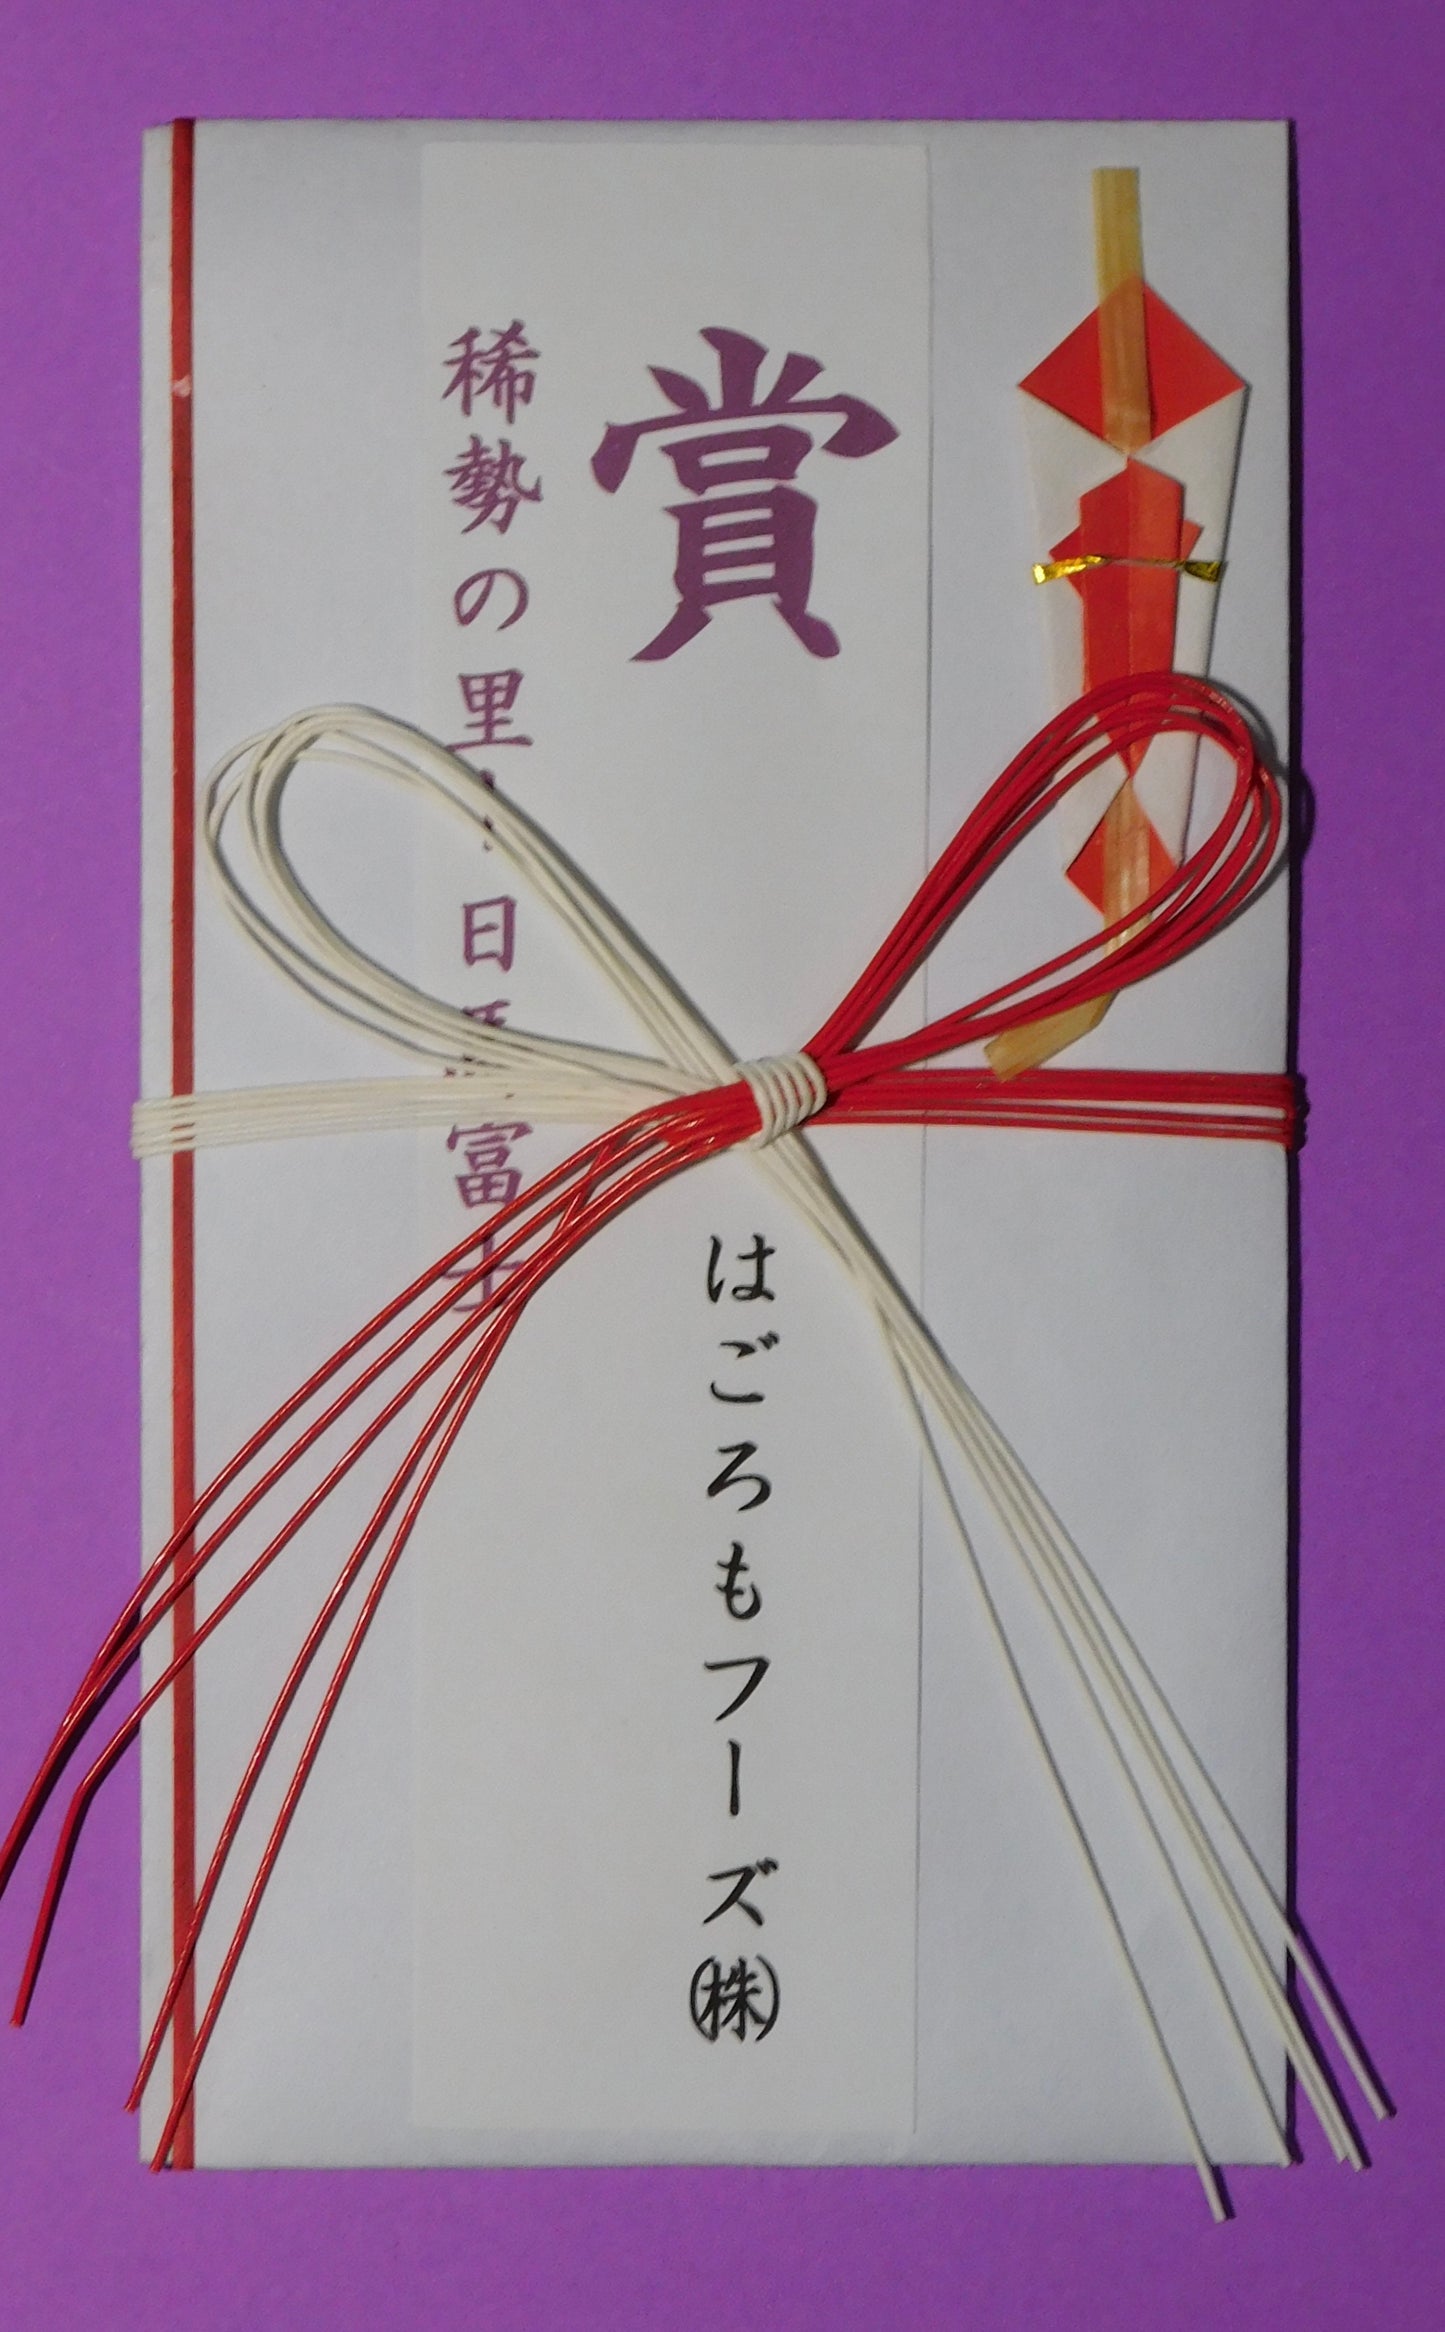 賞
はごろもフーズ㈱
稀勢の里 日馬富士